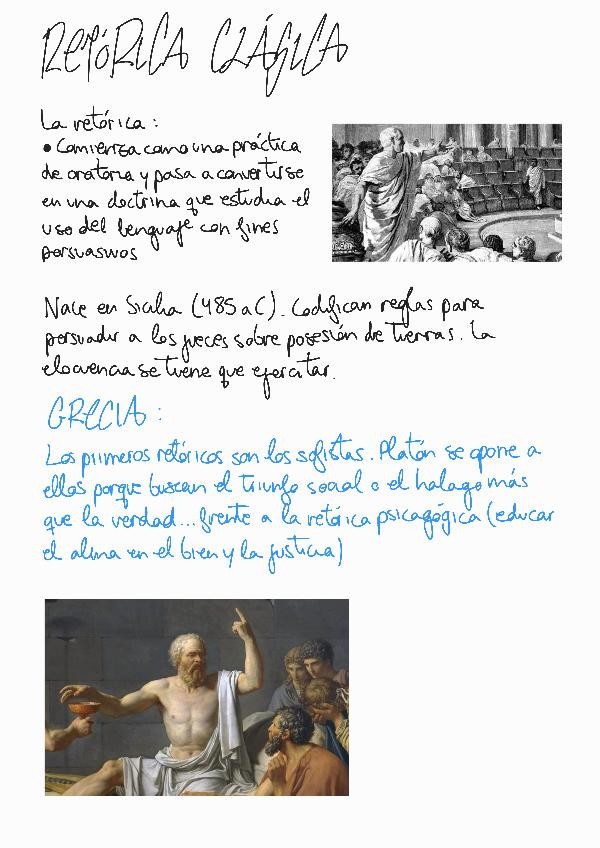 RETÓRICA CLÁSICA
La retórica :
• Comienza como una práctica
de oratoria y pasa a convertirse
en una doctrina que estudia el
uso del lenguaje con fines
persuasivos
Nace en Sicilia (485 a C). Codifican reglas para
persuadir a los jueces sobre posesión de tierras. La
elocuencia se tiene que ejercitar.
GRECIA :
Los primeros retóricos son los sofistas. Platón se opone a
ellos porque buscan el triunfo social o el halago más
que la verdad... frente a la retórica psicagógica (educar
el alma en el bien y la justicia)